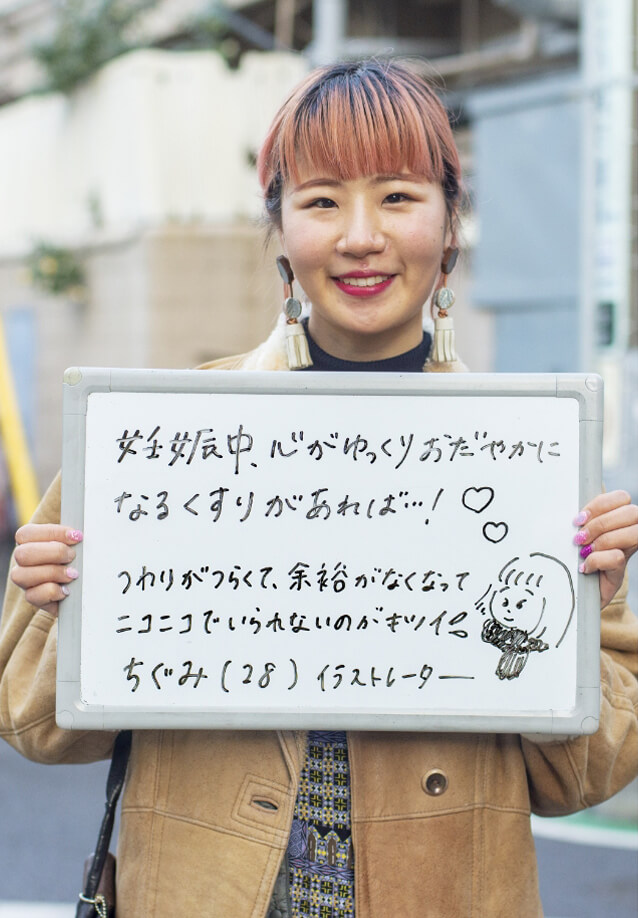 妊娠中、心がゆっくりおだやかに
なるくすりがあれば…!♡♡
つわりがつらくて、余裕がなくなって
ニコニコでいられないのがキツイ
ちぐみ(28)イラストレーター